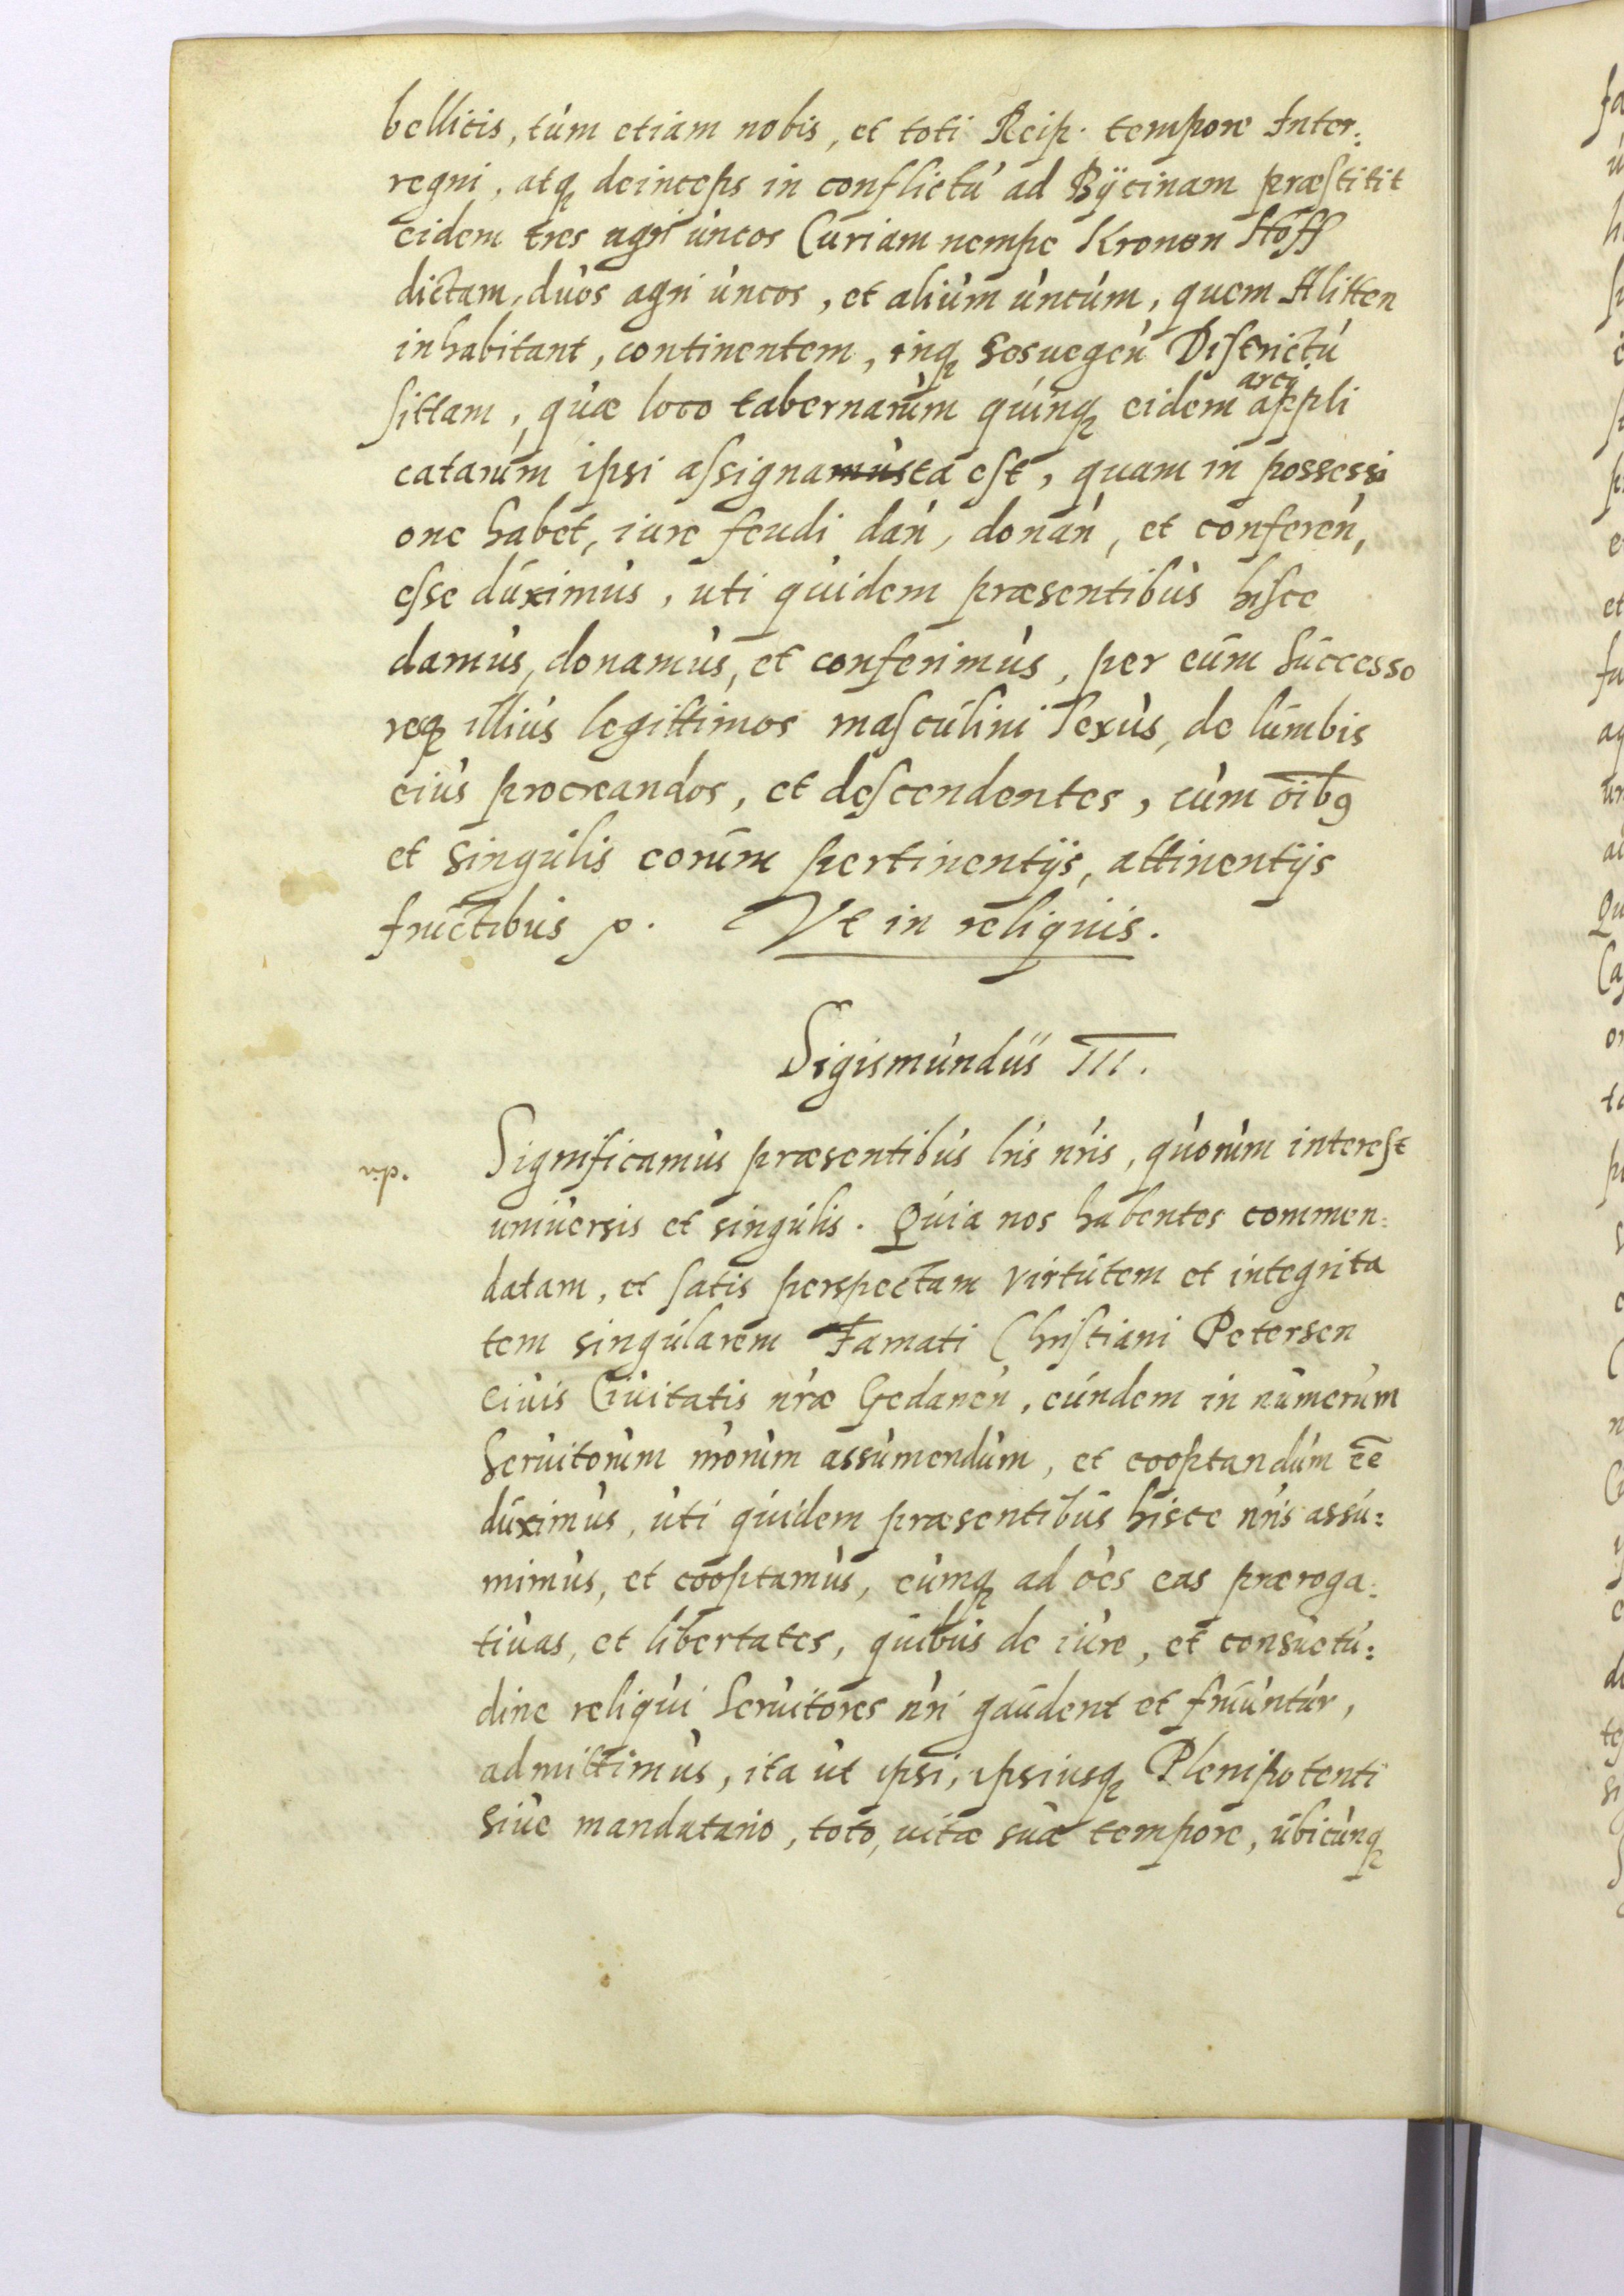 bellicis, tum etiam nobis, et toti Reip. tempore Inter:
regni, atq deinceps in conflictu ad Bÿcinam præstitit
eidem tres agri uncos Curiam nempe Kronen Hoff
dictam, duos agri uncos, et alium uncum, quem Alitten
inhabitant, continentem, inq Sesuegen Districtu
sittam, quæ loco tabernarum quinq eidem arci appli
catarum ipsi assignamusta est, quam in possessi
one habet, iure feudi dan, donan, et conferen,
esse duximus, uti quidem præsentibus hisce
damus, donamus, et conferimus, per eum Successo
resq illius legittimos masculini Sexus, de lumbis
eius procreandos, et descendentes, cum oibg
et singulis eorum pertinentijs, attinentijs
fructibus p. Vt in reliquis.
Sigismundus III.
Significamus præsentibus lris nris, quorum interest
vniuersis et singulis. Quia nos habentes commen:
datam, et satis perspectam virtutem et integrita
tem singularem Famati Christiani Petersen
Ciuis Ciuitatis nræ Gedanen, eundem in numerum
Seruitorum nrorum assumendum, et cooptandum ee
duximus, uti quidem præsentibus hisce nris assu:
mimus, et cooptamus, eumq ad oes eas præroga:
tiuas, et libertates, quibus de iure, et consuetu:
dine reliqui Seruitores nri gaudent et fruuntur,
admittimus, ita ut ipsi, ipsiusq Plenipotenti
siue mandatario, toto, vitæ suæ tempore, ubicunq